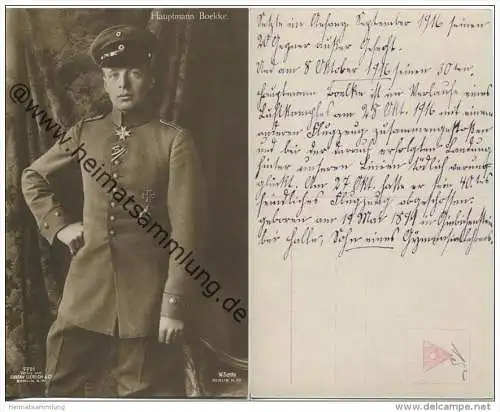 Hauptmann Boelke.
Setzte im Anfang September 1916 seinen
20 Gegner außer Gefecht.
Und am 8 Oktober 1916 seinen 30ten.
Hauptmann Boelke ist im Verlaufe eines
Luftkampfes am 28 Okt. 1916 mit einem
anderen Flugzeug zusammengestoßen
und bei der darauf erfolgten Landung
hinter unseren Linien tödlich verun-
glückt. Am 27 Okt. hatte er sein 40 tes
feindliches Flugzeug abgeschossen.
geboren am 19 Mai 1891 in Giebichenstein
bei Halle, Sohn eines
www.heimatsammlung.de
7791
GUSTAV LIERSCH & Co
BERLIN S.W.
W. Sanke
BERLIN N. 37
www.heimatsammlung.de